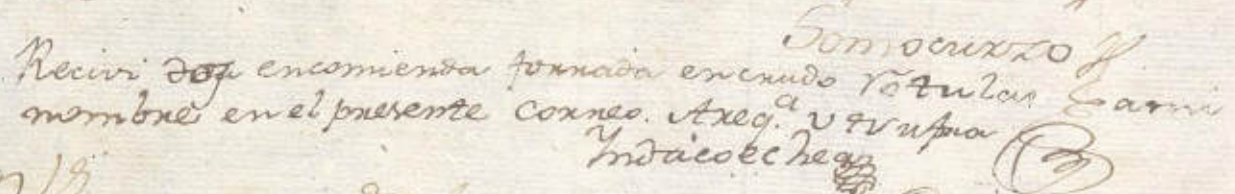 Somocurzo
Recivi dos encomienda forrada en crudo rotulas a mi
nombre en el presente correo. Areq.ª ut supra
Indacoechea